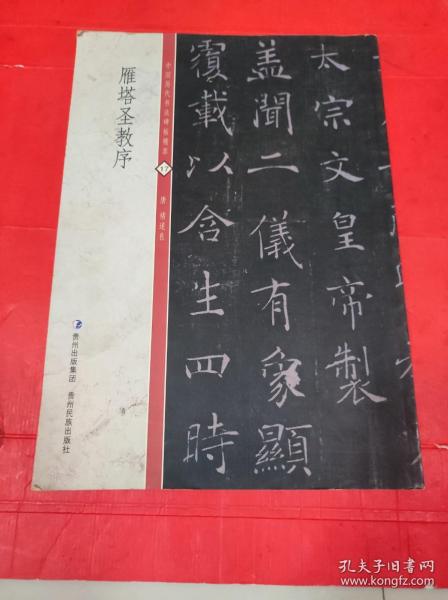 雁塔圣教序
中国历代书法碑帖精粹
17
唐 褚遂良
太宗文皇帝製
盖聞二儀有象顯
覆載以含生四時
贵州出版集团 贵州民族出版社
孔夫子旧书网
www.kongfz.com